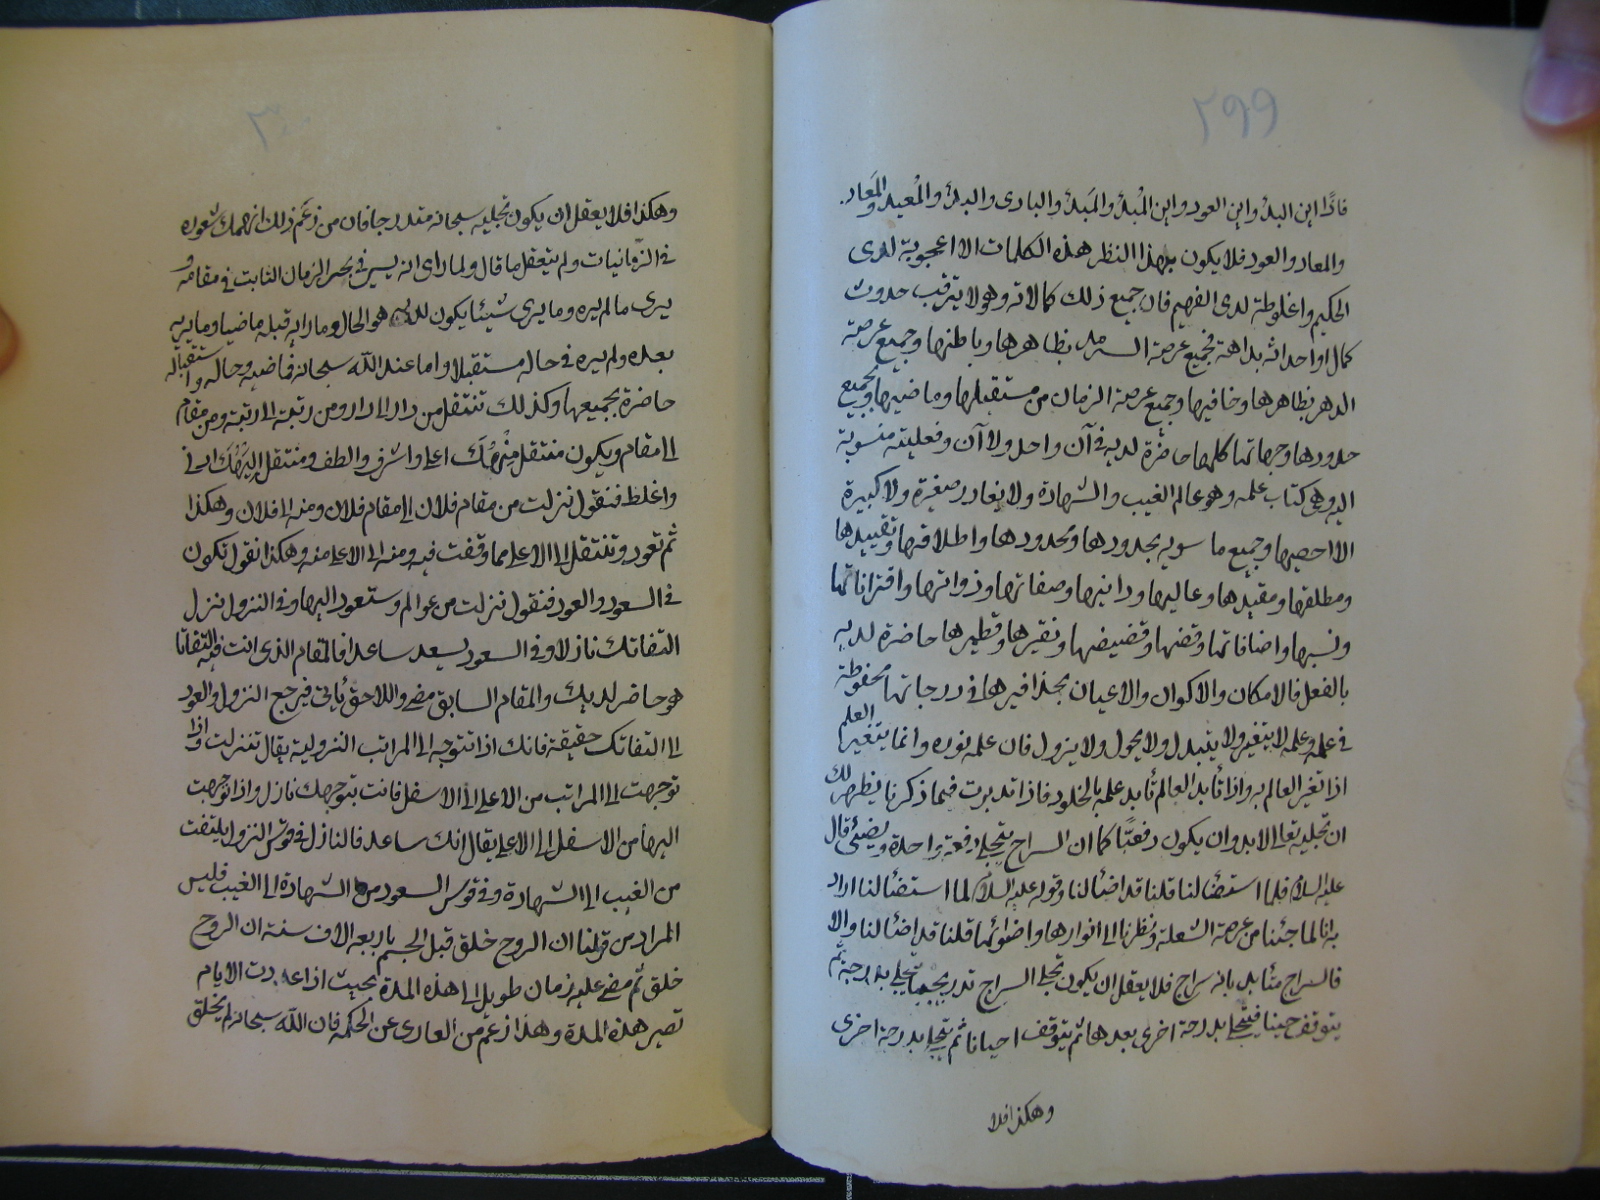 ٢٩٩
فاذًا اين البدؤ واين العود واين المبدَأ والمبدِئ والبادى والبدئ والمعيد والمعاد
والمعاد والعود فلا يكون بهذا النظر هذه الكلمات الا اعجوبة لدى
الحكيم واغلوطة لدى الفهيم فان جميع ذلك كمالاته وهو لا يترقب حدوث
كمال او احداثه بداهة فجميع عرصة السرمد بظاهرها وباطنها وجميع عرصة
الدهر بظاهرها وخافيها وجميع عرصة الزمان من مستقبلها وماضيها وبجميع
حدودها وجهاتها كلها حاضرة لديه فى آن واحد ولا آن وفعليته منسوبة
اليه وهى كتاب علمه وهو عالم الغيب والشهادة ولا يغادر صغيرة ولا كبيرة
الا احصيها وجميع ما سويه بحدودها ومحدودها واطلاقها وتقييدها
ومطلقها ومقيدها وعاليها ودانيها وصفاتها وذواتها واقتراناتها
ونسبها واضافاتها وقضها وقضيضها ونقيرها وقطميرها حاضرة لديه
بالفعل فالامكان والاكوان والاعيان بحذافيرها فى درجاتها محفوظة
فى علمه وعلمه لا يتغير ولا يتبدل ولا يحول ولا يزول فان علمه نوره وانما يتغير العلم
اذا تغير العالم به واذا تأبد العالم تأبد علمه بالخلود فاذا تدبرت فيما ذكرنا يظهر لك
ان تجليه تعالى لابد وان يكون دفعيًا كما ان السراج يتجلى دفعة واحدة ويضئ قال
عليه السلام فلما استضئالنا قلنا قد اضئالنا وقوله عليه السلام لما استضئالنا اراد
به انا لما جئنا من عرصة الشعلة ونظرنا الى انوارها واضوائها قلنا قد اضئالنا والا
فالسراج متأبد بانه سراج فلا يعقل ان يكون تجلى السراج تدريجيا يتجلى بدرجة ثم
يتوقف حينا فيتجلى بدرجة اخرى بعدها ثم يتوقف احيانا ثم يتجلى بدرجة اخرى
وهكذا فلا
٣٠٠
وهكذا فلا يعقل ان يكون تجليه سبحانه متدرجا فان من زعم ذلك انهمك شعوره
فى الزمانيات ولم يتعقل ما قال ولما راى انه يسير فى بحر الزمان الثابت فى مقامه و
يرى ما لم يره وما يرى شيئا يكون لديه هو الحال وما راه قبله ماضيا وما يريه
بعده ولم يره فى حاله مستقبلا واما عند الله سبحانه فماضيه وحاله واستقباله
حاضرة بجميعها وكذلك تنتقل من دار الى دار ومن رتبة الى رتبة ومن مقام
الى مقام ويكون منتقل منهك اعلى واشرف والطف ومنتقل اليهك ادنى
واغلظ فنقول نزلت من مقام فلان الى مقام فلان ومنه الى فلان وهكذا
ثم تعود وتنتقل الى الاعلى مما وقفت فيه ومنه الى الاعلى منه وهكذا نقول تكون
فى السعود والعود فنقول نزلت من عوالم وستعود اليها وفى النزول نزل
التفاتك نازلا وفى السعود يسعد ساعدا فالمقام الذى انت فيه التفاتا
هو حاضر لديك والمقام السابق مضى واللاحق يأتى فيرجع النزول والعود
الى التفاتك حقيقة فانك اذا تتوجه الى المراتب النزولية يقال تنزلت واذا
توجهت الى المراتب من الاعلى الى الاسفل فانت بتوجهك نازل واذا توجهت
اليها من الاسفل الى الاعلى يقال انك ساعد فالنازل فى قوس النزول يلتفت
من الغيب الى الشهادة وفى قوس السعود من الشهادة الى الغيب فليس
المراد من قولنا ان الروح خلق قبل الجسم باربعه الاف سنة ان الروح
خلق ثم مضى عليه زمان طويل الى هذه المدة بحيث اذا عددت الايام
تصير هذه المدة وهذا زعم من العارى عن الحكمه فان الله سبحانه لم يخلق